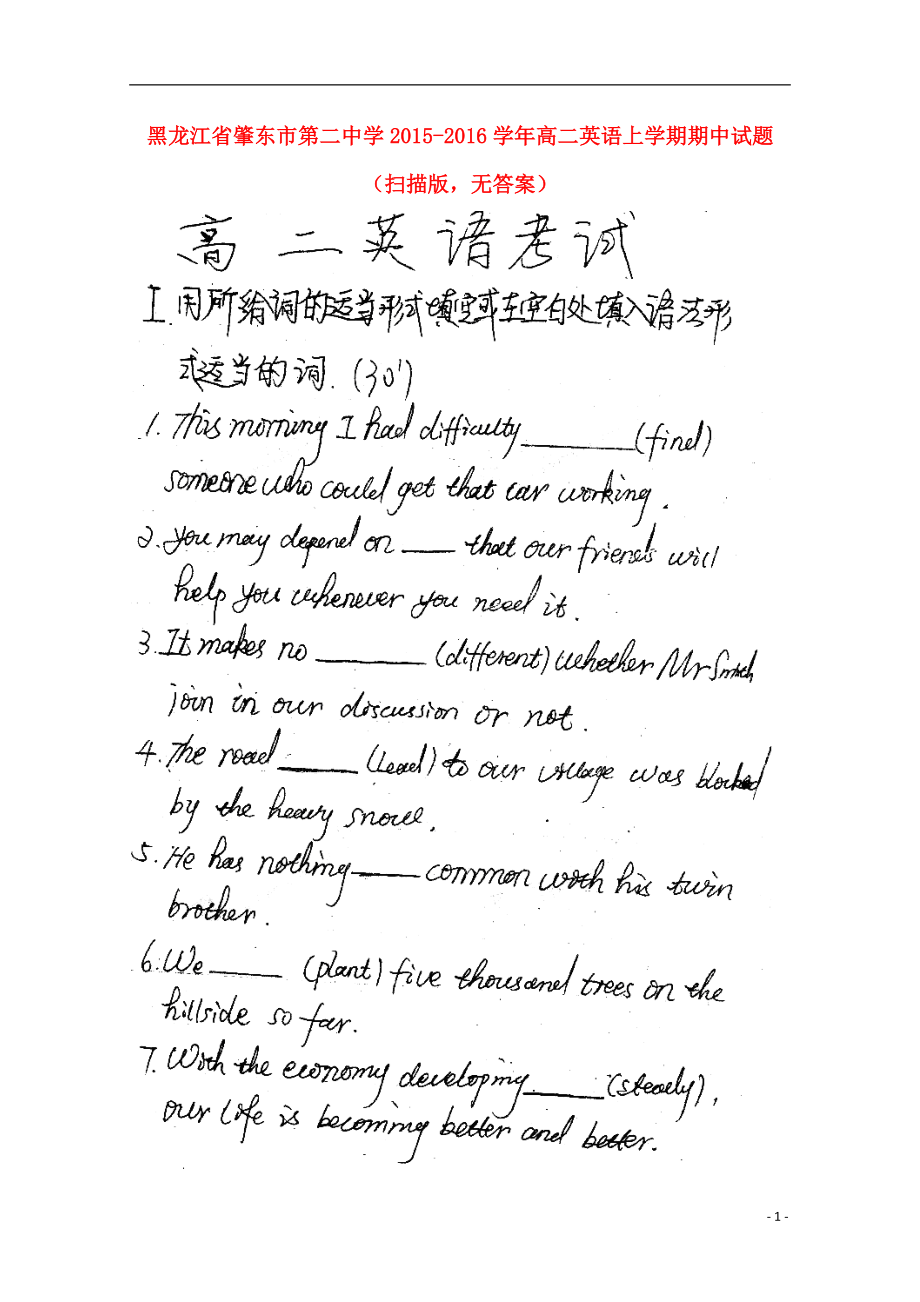 黑龙江省肇东市第二中学 2015-2016 学年高二英语上学期期中试题
（扫描版，无答案）
高二英语考试
I.用所给词的适当形式填空或在空白处填入语法形
式适当的词.(30')
1. This morning I had difficulty ________ (find)
someone who could get that car working.
2. You may depend on ___ that our friends will
help you whenever you need it.
3. It makes no ________ (different) whether Mr Smith
join in our discussion or not.
4. The road ______ (lead) to our village was blocked
by the heavy snow.
5. He has nothing _____ common with his twin
brother.
6. We _____ (plant) five thousand trees on the
hillside so far.
7. With the economy developing _____ (steady),
our life is becoming better and better.
- 1 -